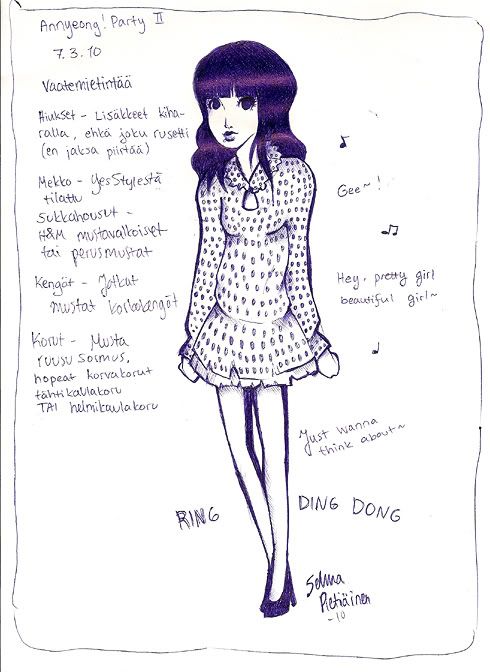 Annyeong! Party II
7.3.10
Vaatemietintää
Hiukset - Lisäkkeet kiha-
ralla, ehkä joku rusetti
(en jaksa piirtää)
Mekko - YesStylestä
tilattu
Sukkahousut -
H&M mustavalkoiset
tai perusmustat
Kengät - Jotkut
mustat korkokengät
Korut - Musta
ruusu sormus,
hopeat korvakorut
tähtikaulakoru
TAI helmikaulakoru
Gee~!
Hey, pretty girl
beautiful girl~
Just wanna
think about~
RING DING DONG
Selma
Pietiäinen
-10